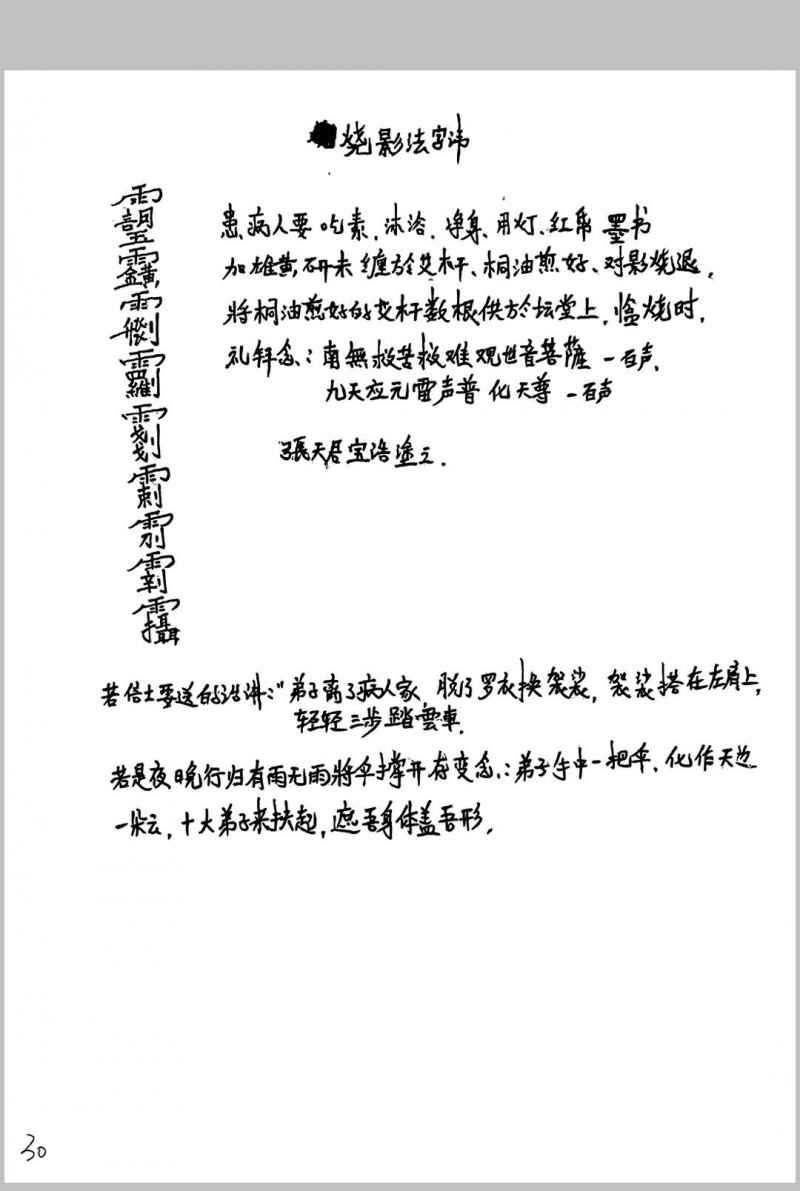 烧影法字讳
患病人要吃素、沐浴、净身、用灯、红帛 墨书
加雄黄研末缠於艾杆、桐油煎好、对影烧退。
將桐油煎好的艾杆数根供于坛堂上，临烧时，
礼拜念：南無救苦救难观世音菩薩 一百声，
九天应元雷声普化天尊 一百声
張天君宝诰
若信士要送的话讲："弟子离了病人家 脱了罗衣换袈裟，袈裟搭在左肩上，
轻轻三步踏雲車．
若是夜晚行归有雨无雨將伞撑开存变念：弟子手中一把伞，化作天边
一朵云，十大弟子来扶起，遮吾身体盖吾形．
30